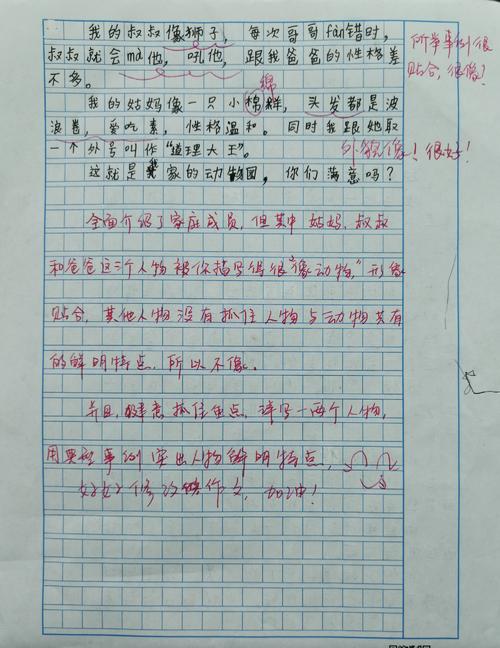 我的叔叔像狮子，每次哥哥fàn错时，
叔叔就会mà他，吼他，跟我爸爸的性格差
不多。
绵
我的姑妈像一只小棉群，头发都是波
浪卷，爱吃素，性格温和。同时我跟她取
一个外号叫作“道理大王”。
这就是我家的动物园，你们满意吗？
所举事例很
贴合，很像！
外貌像！很好！
全面介绍了家庭成员，但其中姑妈、叔叔
和爸爸这三个人物被你描写得很“像动物”，形象
贴合，其他人物没有抓住人物与动物共有
的鲜明特点，所以不像。
并且，注意抓住重点，详写一两个人物，
用典型事例突出人物鲜明特点，
好好修改作文，加油！